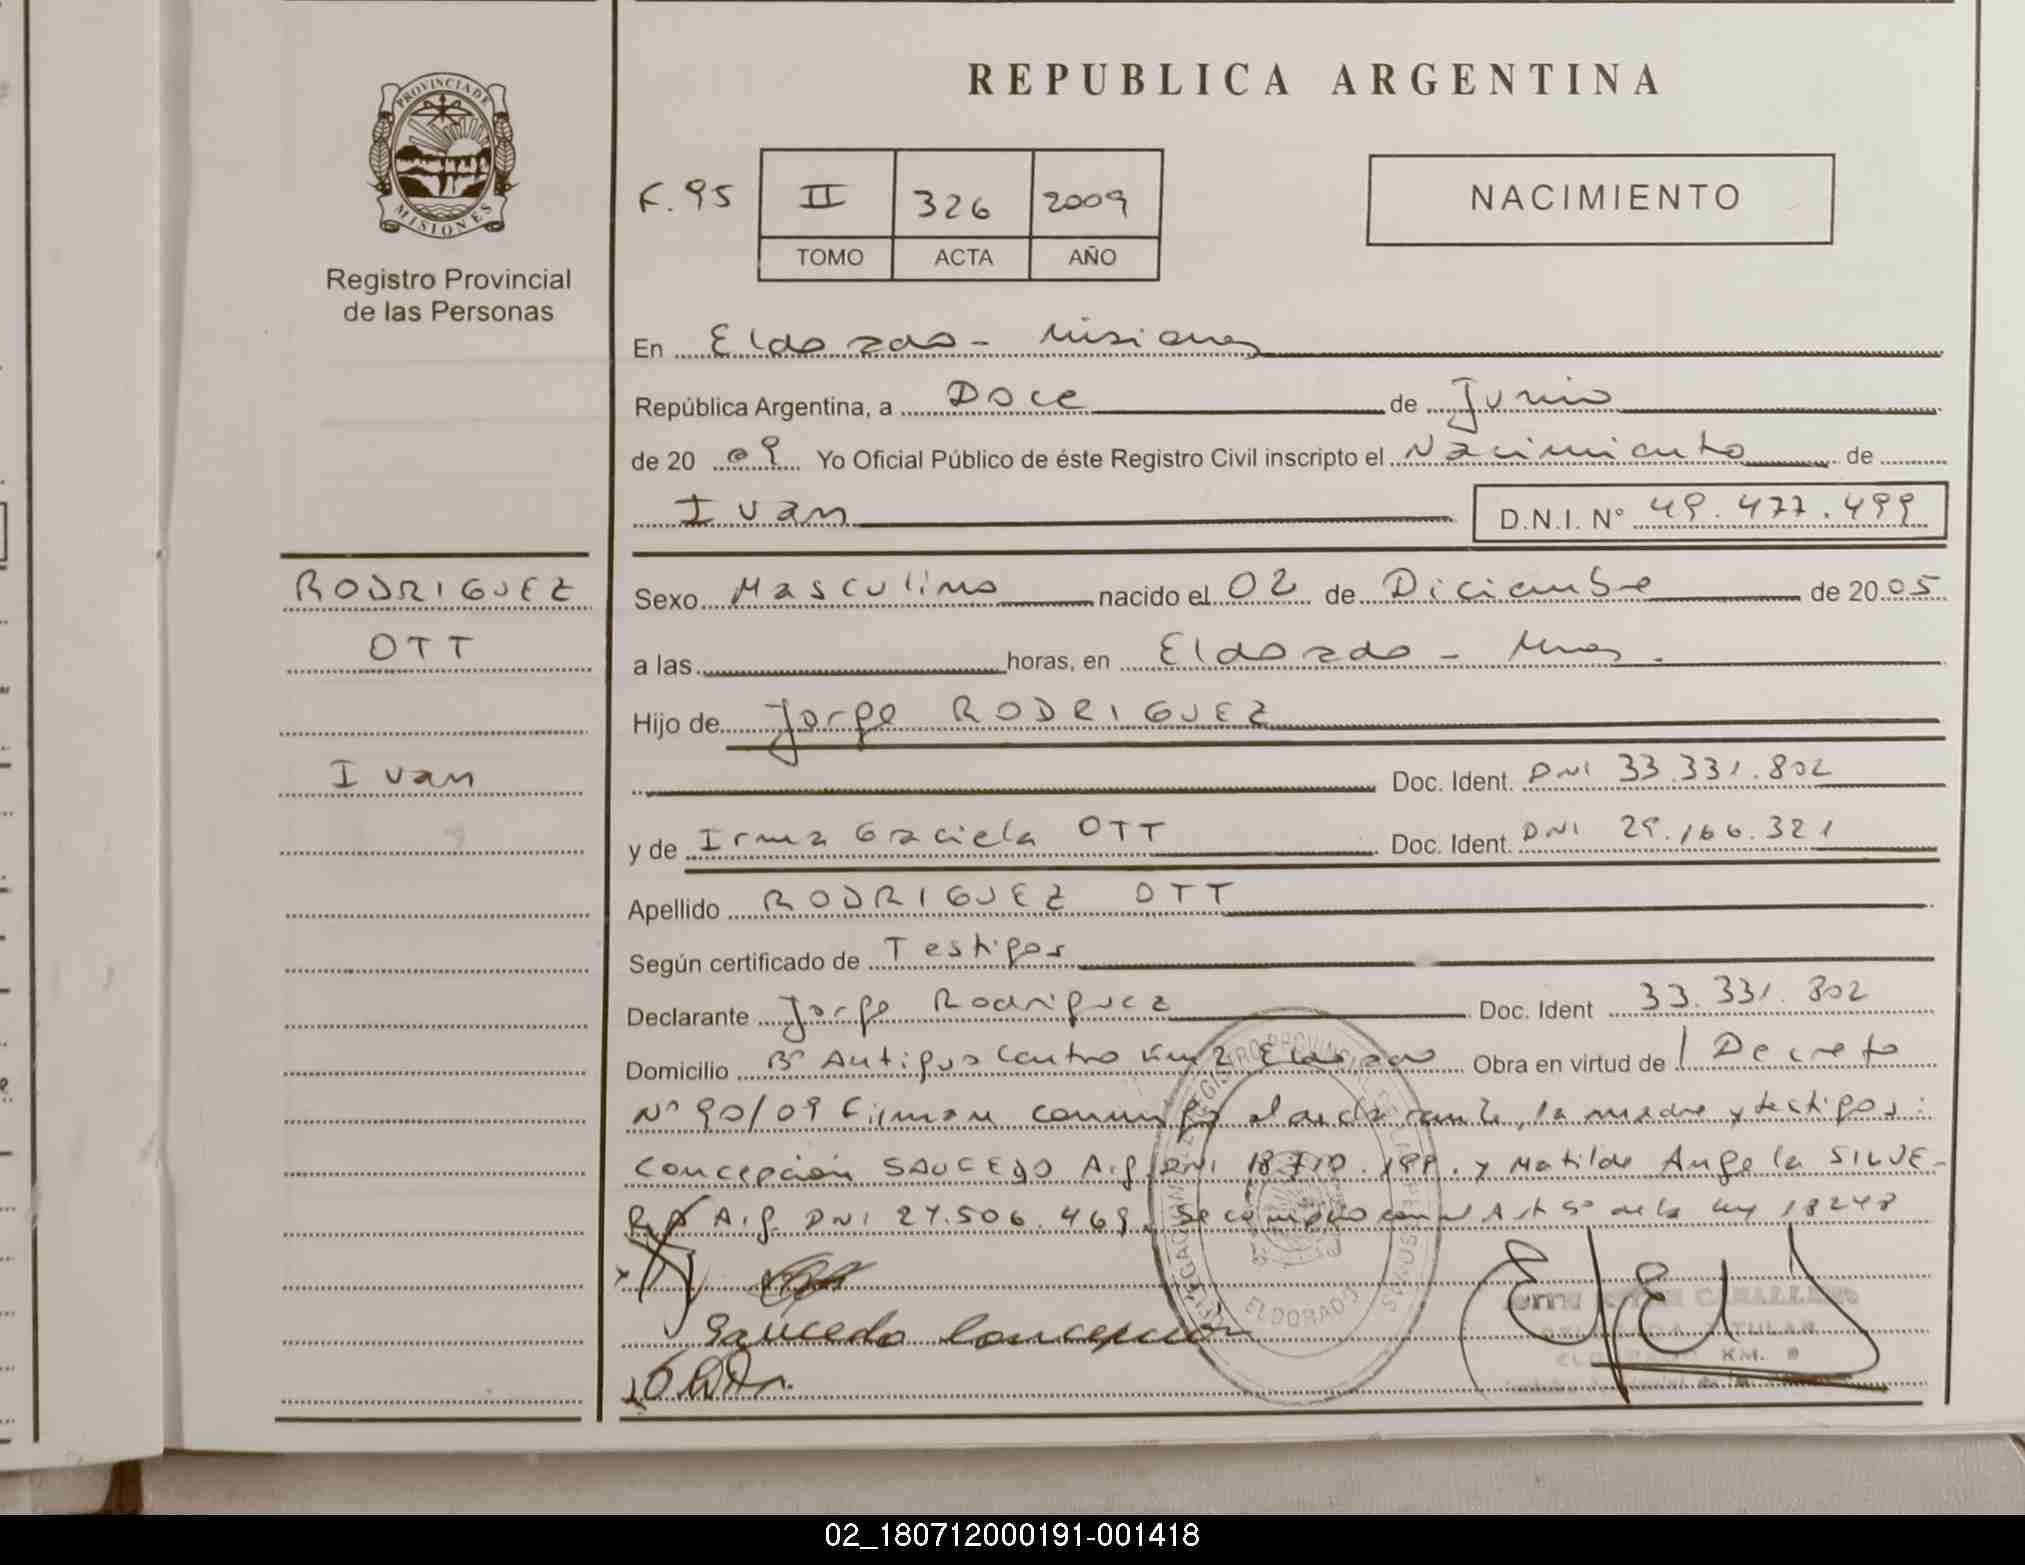 PROVINCIA DE
MISIONES
Registro Provincial
de las Personas
RODRIGUEZ
OTT
Ivan
REPUBLICA ARGENTINA
F. 95 II 326 2009
TOMO ACTA AÑO
NACIMIENTO
En Eldorado - Misiones
República Argentina, a Doce de Junio
de 20 09 Yo Oficial Público de éste Registro Civil inscripto el Nacimiento de
Ivan D.N.I. N° 49.477.499
Sexo Masculino nacido el 02 de Diciembre de 20 05
a las horas, en Eldorado - Mnes.
Hijo de Jorge RODRIGUEZ
Doc. Ident. DNI 33.331.802
y de Irma Graciela OTT Doc. Ident. DNI 29.166.321
Apellido RODRIGUEZ OTT
Según certificado de Testigos
Declarante Jorge Rodriguez Doc. Ident 33.331.802
Domicilio B° Antiguo Centro Km 2 Eldorado Obra en virtud de Decreto
N° 90/09 Firman conmigo el declarante, la madre y testigos:
Concepción SAUCEDO A.g. DNI 18.710.199. y Matilde Angela SILVE-
RA A.g. DNI 27.506.469. Se cumplio con el Art 5° de la ley 18248
Saucedo Concepcion
REGISTRO PROVINCIAL
ELDORADO
CABALLERO
TITULAR
KM. 9
02_180712000191-001418